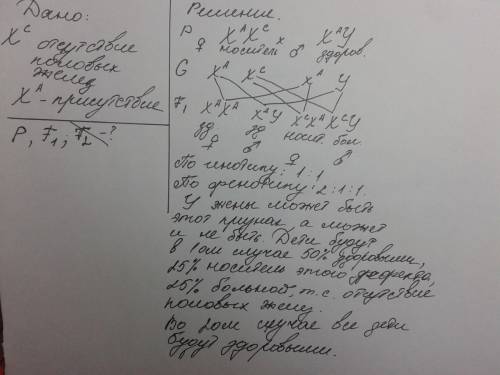 Дано:
X^c отсутствие
половых
желез
X^A - присутствие
P, F₁; F₂ -?
Решение.
P ♀ X^A X^c × ♂ X^A Y
носитель здоров.
G X^A X^c X^A Y
F₁ X^A X^A X^A Y X^c X^A X^c Y
зд. зд носит. бол.
♀ ♂ ♀ ♂
По генотипу: 1:1
По фенотипу: 2:1:1.
У жены может быть
этот признак, а может
и не быть. Дети будут
в 1ом случае 50% здоровыми,
25% носитель этого дефекта,
25% больной, т.е. отсутствие
половых желез.
Во 2ом случае все дети
будут здоровыми.